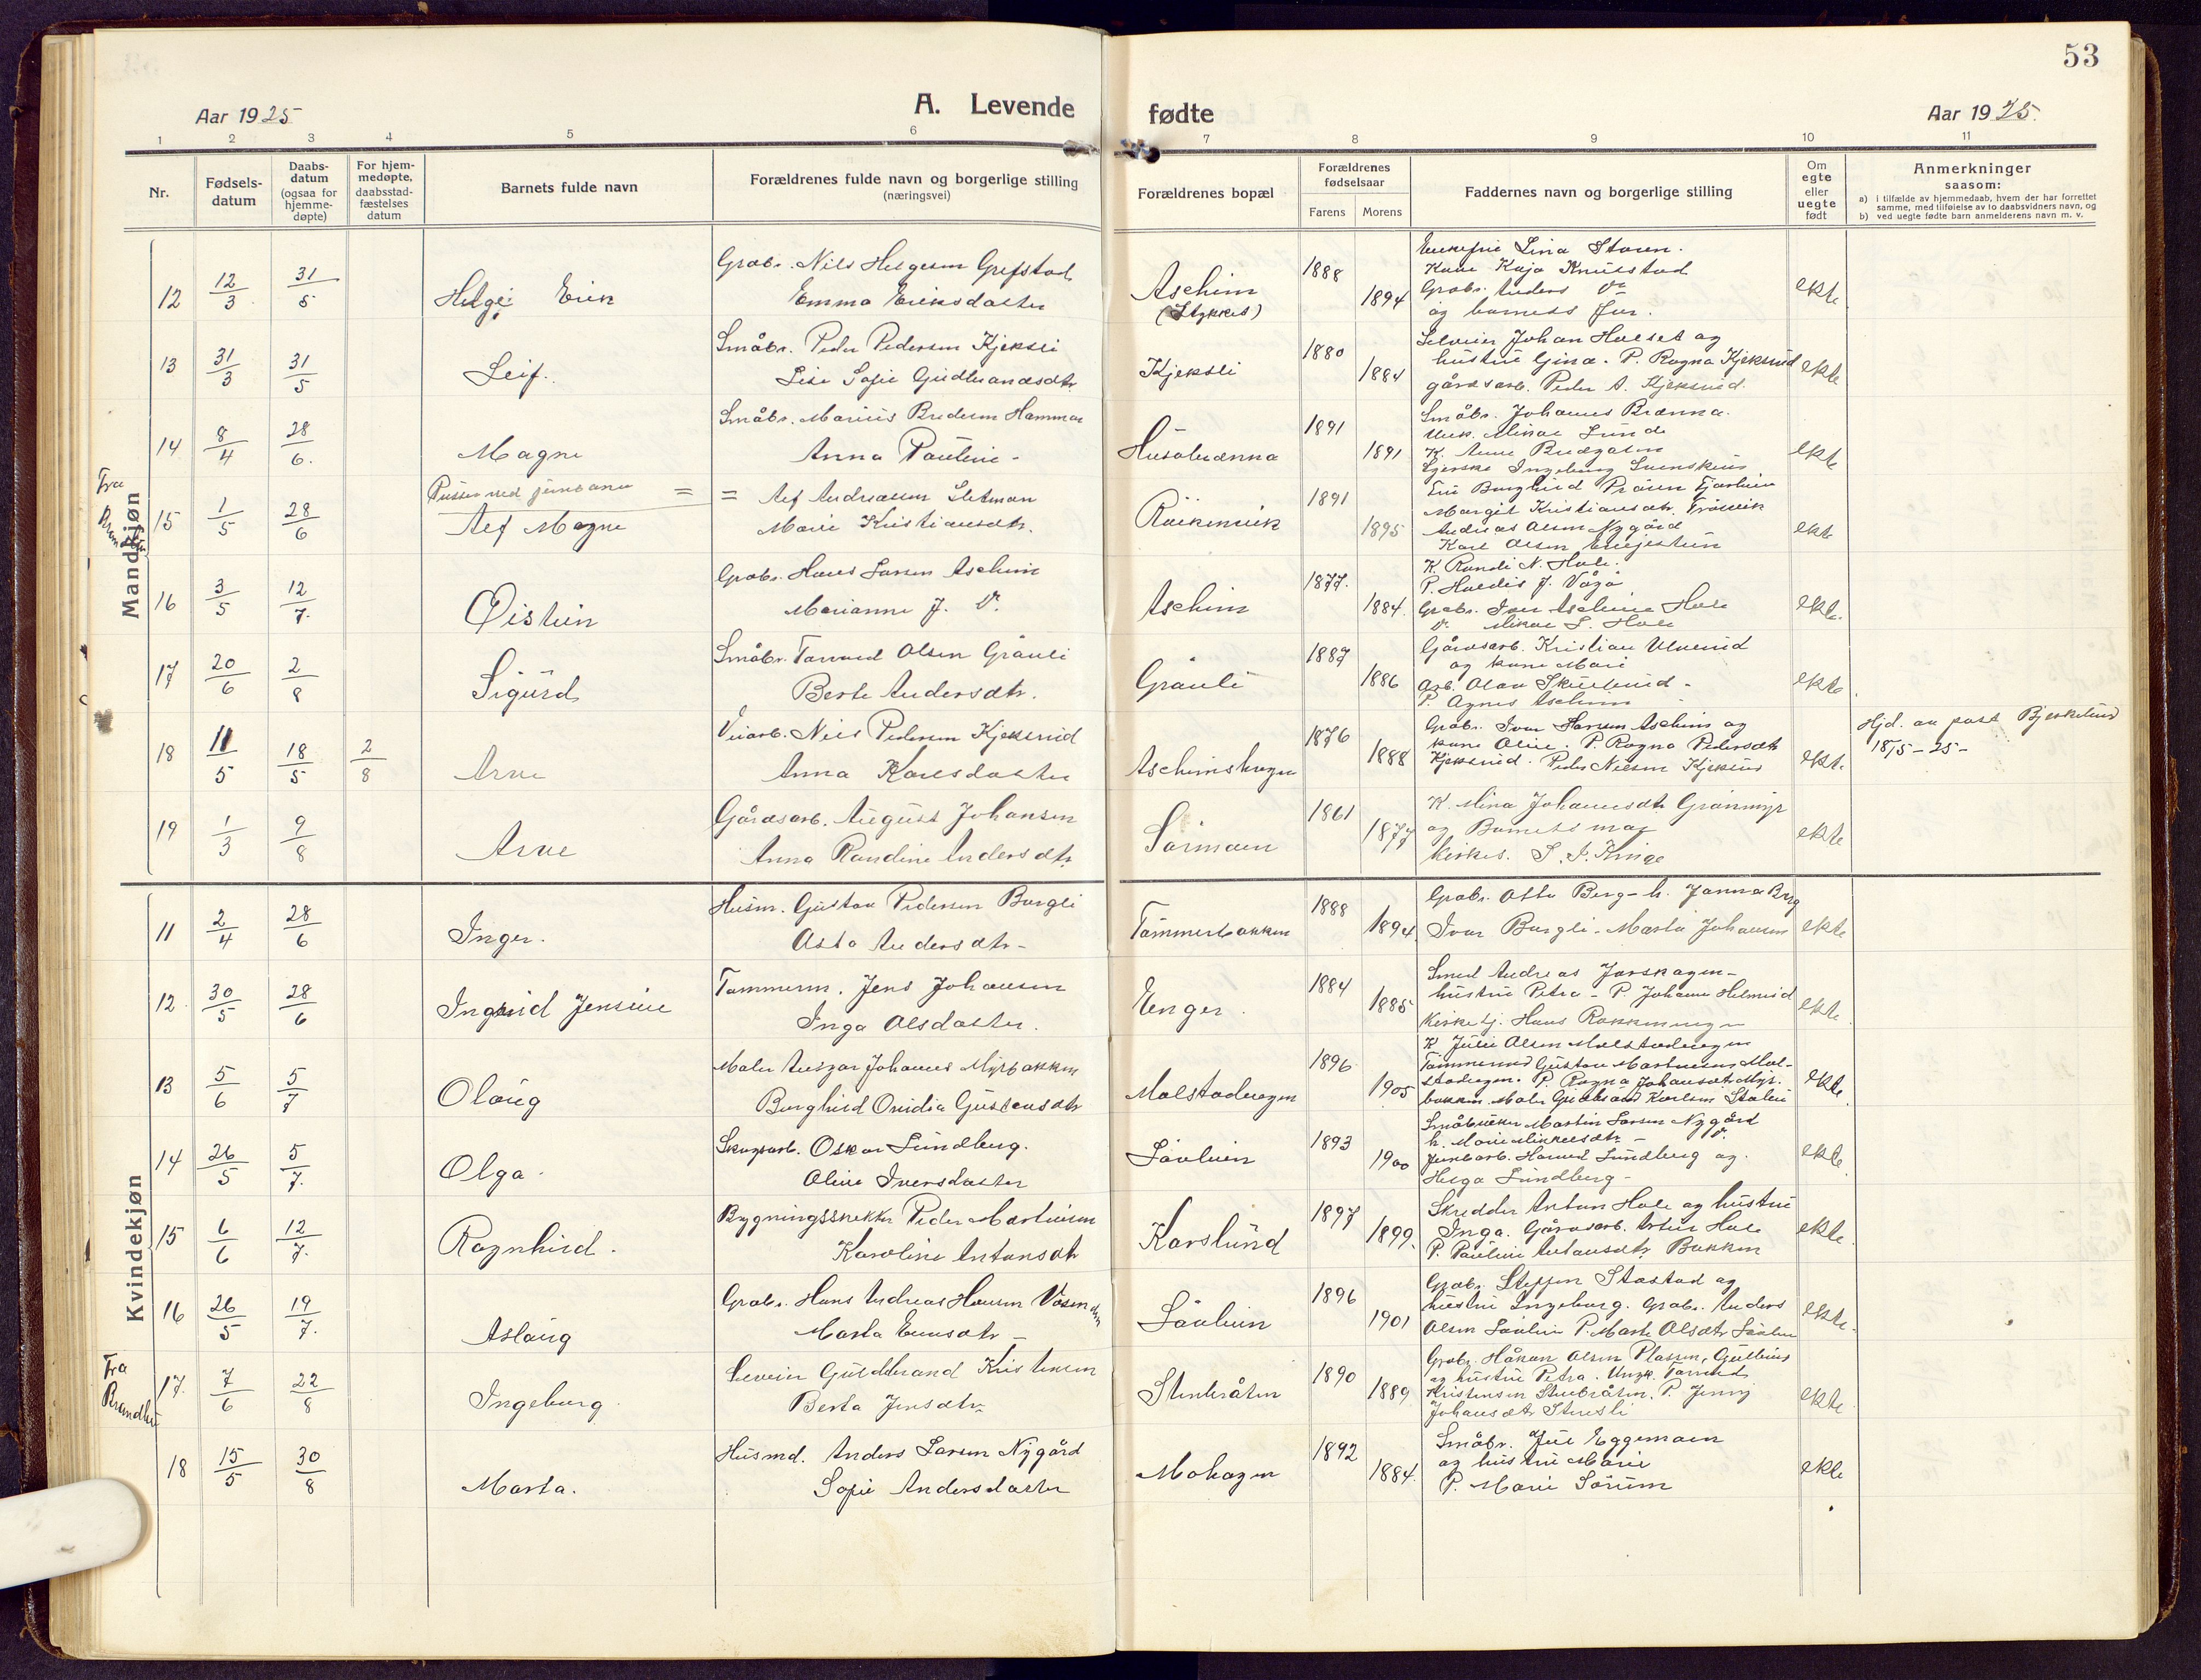 53
Aar 1925
A. Levende
fødte
Aar 1925.
1 2 3 4 5 6 7 8 9 10 11
Nr.
Fødsels-
datum
Daabs-
datum
(ogsaa for
hjemme-
døpte)
For hjem-
medøpte,
daabsstad-
fæstelses
datum
Barnets fulde navn
Forældrenes fulde navn og borgerlige stilling
(næringsvei)
Forældrenes bopæl
Forældrenes
fødselsaar
Farens Morens
Faddernes navn og borgerlige stilling
Om
egte
eller
uegte
født
Anmerkninger
saasom:
a) i tilfælde av hjemmedaab, hvem der har forrettet
samme, med tilføielse av to daabsvidners navn, og
b) ved uegte fødte barn anmelderens navn m. v.
Mandkjøn
12 12/3 31/5 Helge Erik
Grdbr. Nils Helgesen Grefstad
Emma Eriksdatter
Aschim
(Stykket)
1888 1894
Lina
Kone Kaja
Grdbr. Anders Do
og barnets far.
ekte
13 31/3 31/5 Leif.
Småbr. Peder Pedersen Kjeksli
Lise Sofie Gudbrandsdtr
Kjeksli
1880 1884
Johan Holset og
hustru Gina. P. Ragna Kjeksrud
gårdsarb. Peder A. Kjeksrud.
ekte
14 8/4 28/6. Magne
Småbr. Marius Bredesen Hammar
Anna Pauline -
Husebrænna
1891 1891
Småbr. Johannes Brænna.
K. Anna
Ingeborg
ekte
Fra
15 1/5 28/6
= = Alf Andreassen Sletmoen
Alf Magne
Marie Kristiansdtr.
1891 1895
Margit Kristiansdtr.
Andreas Olsen Nygård
Karl Olsen
ekte
16 3/5 12/7. Øistein
Grdbr. Hans Larsen Aschim
Marianne J. Do.
Aschim
1877. 1884.
K. Randi N. Hole.
P. Haldis J. Vågå
Grdbr. Iver Aschim Hole
Do. Mikal L. Hole
ekte.
17 20/6 2/8 Sigurd
Småbr. Torvald Olsen Gråuli
Berte Andersdtr.
Gråuli
1887 1886
Gårdsarb. Kristian Ulverud
og kone Mari
Arb. Olav
P. Agnes Aschim
ekte.
18 11/5 18/5 2/8 Arne
Veiarb. Nils Pedersen Kjeksrud
Anna Karlsdatter
Aschimshagen
1876 1888
Grdbr. Iver Hansen Aschim og
kone Oline. P. Ragna Pedersdtr
Kjeksrud. Peder Nilsen Kjeksrud
ekte.
Hjd. av past Bjerkelund
18/5 - 25 -
19 1/3 9/8 Arne
Gårdsarb. August Johansen
Anna Randine Andersdtr.
Sørmoen
1861 1877
K. Mina Johannesdtr. Grønmyr
og Barnets mor
Kirkes. S. I. Kinge
ekte
Kvindekjøn
11 2/4 28/6 Inger.
Husm. Gustav Pedersen Borgli
Asta Andersdtr -
Tømmerbakken
1888 1894
Grdbr. Otto Berg - h. Janna Berg
Ivar Borgli - Marta Johansen
ekte
12 30/5 28/6 Ingrid Jensine
Tømmerm. Jens Johansen
Inga Olsdatter.
Enger.
1884 1885
Smed Andreas Jarshagen -
hustru Petra - P. Johanne Helmeid
Kirketj. Hans
ekte
13 5/6 5/7 Olaug
Maler Ansgar Johannes Myrbakken
Borghild Ovidia Gustavsdtr
Molstadengen
1896 1905
K. Julie Olsen Molstadengen
Tømmermd Gustav Martinsen Mol-
stadengen. P. Ragna Johansdtr Myr-
bakken. Maler Gudbrand Karlsen
ekte
14 26/5 5/7. Olga.
Skogsarb. Oskar Lundberg.
Oline Iversdatter
Søvlien
1893 1900
Småbruker Martin Larsen Nygård
h. Marie Mikkelsdtr - Do.
Jernbarb. Harald Lundberg og
Helga Lundberg -
ekte
15 6/6 12/7. Ragnhild.
Bygningssnekker Peder Martinsen
Karoline Antonsdtr
Karslund
1897 1899.
Skredder Anton Hole og hustru
Inga. Gårdsarb. Artur Hole
P. Pauline Antonsdtr. Bakken
ekte
16 26/5 19/7. Aslaug
Grdbr. Hans Andreas Hansen
Marta Evensdtr -
Søvlien
1896 1901
Grdbr. Steffen Stastad og
hustru Ingeborg. Grdbr. Anders
Olsen Søvlien P. Marte Olsdtr Søvlien
ekte.
Fra
Brandbu
17. 7/6 22/8 Ingeborg
Gudbrand Kristensen
Berta Jensdtr.
Stenbråten
1890 1889
Grdbr. Håkon Olsen Plassen,
og hustru Petra. Ungk. Torvald
Kristensen Stenbråten. P. Jenny
Johansdtr
ekte
18 15/5 30/8 Marta.
Husmd. Anders Larsen Nygård
Sofie Andersdatter
Mohagen
1892 1884.
Småbr. Juel Eggemoen
og hustru Marie
P. Marie Sørum
ekte